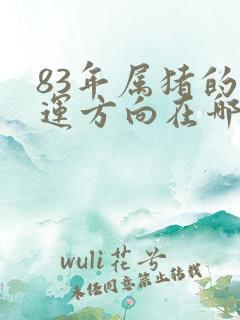 83年属猪的
運方向在哪
wuli花兮
未经同意禁止转载